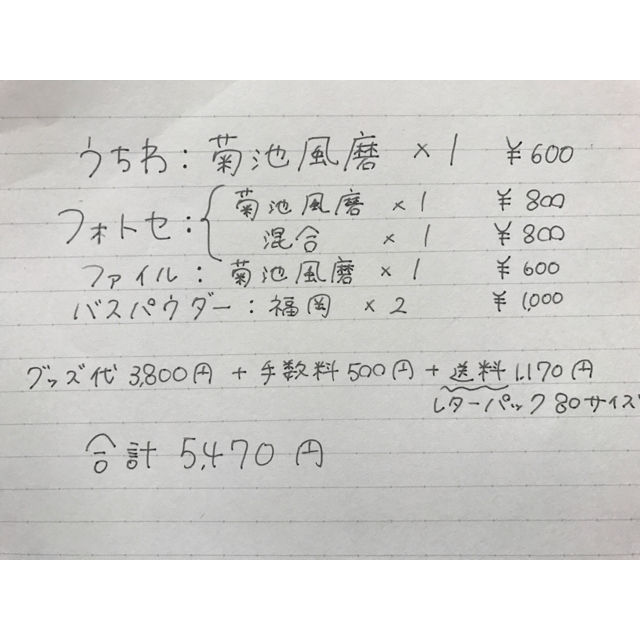 うちわ：菊池風磨 × 1 ¥600
フォトセ：{ 菊池風磨 × 1 ¥800
混合 × 1 ¥800
ファイル：菊池風磨 × 1 ¥600
バスパウダー：福岡 × 2 ¥1,000
グッズ代 3,800円 + 手数料 500円 + 送料 1,170円
レターパック 80サイズ
合計 5,470 円